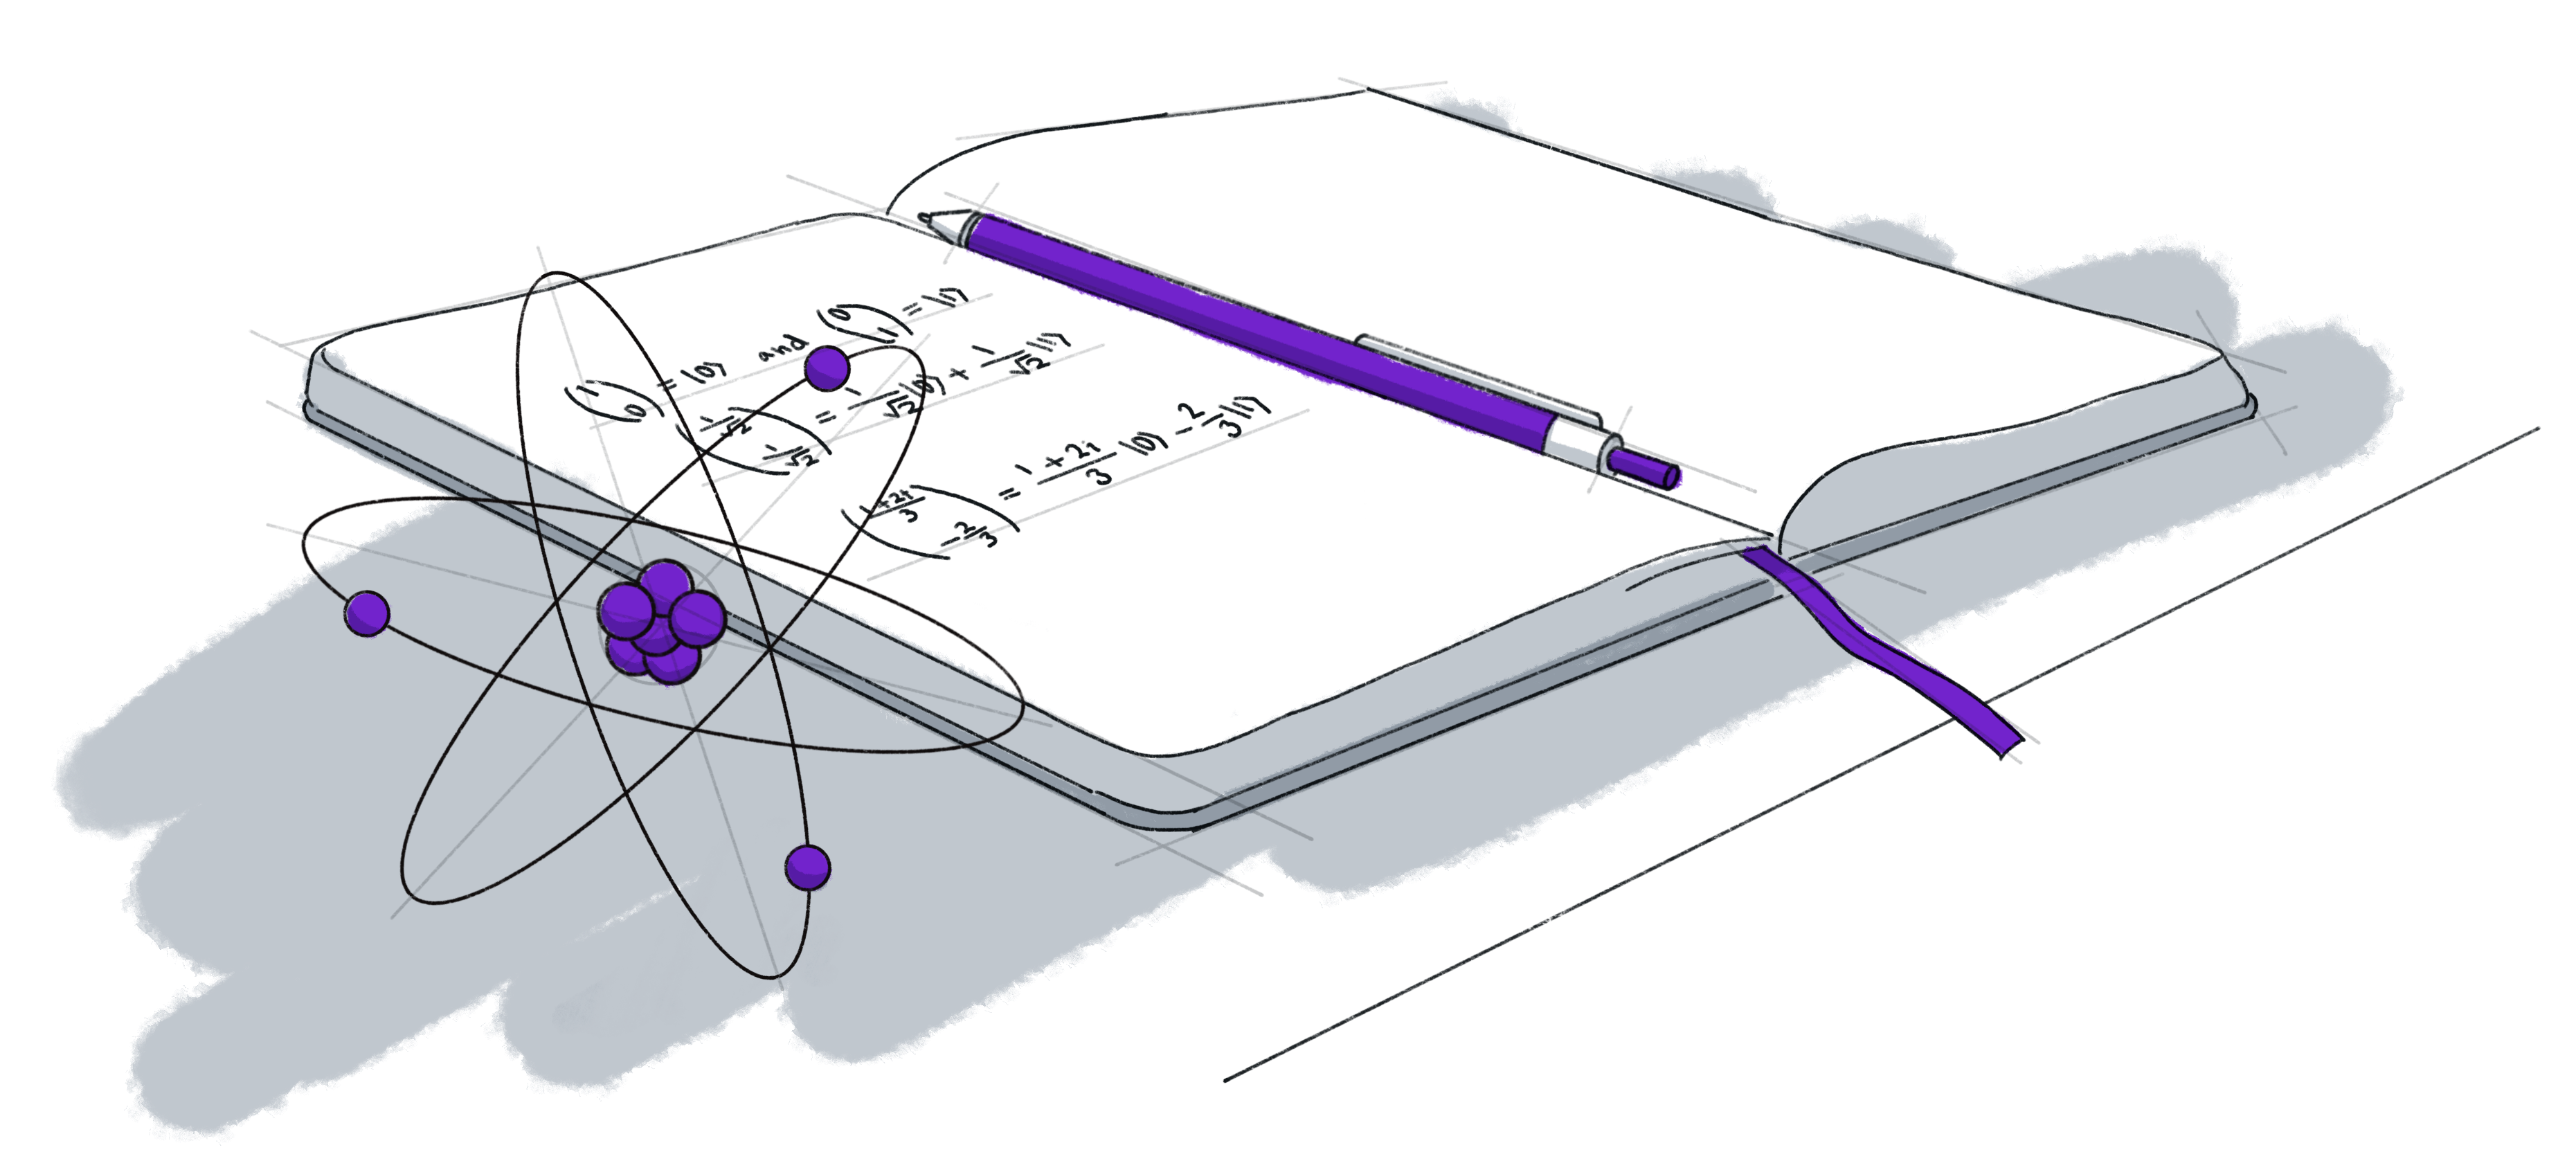 (1 0) = |0⟩ and (0 1) = |1⟩
(1/√2 1/√2) = 1/√2 |0⟩ + 1/√2 |1⟩
(1+2i/3 -2/3) = 1+2i/3 |0⟩ - 2/3 |1⟩